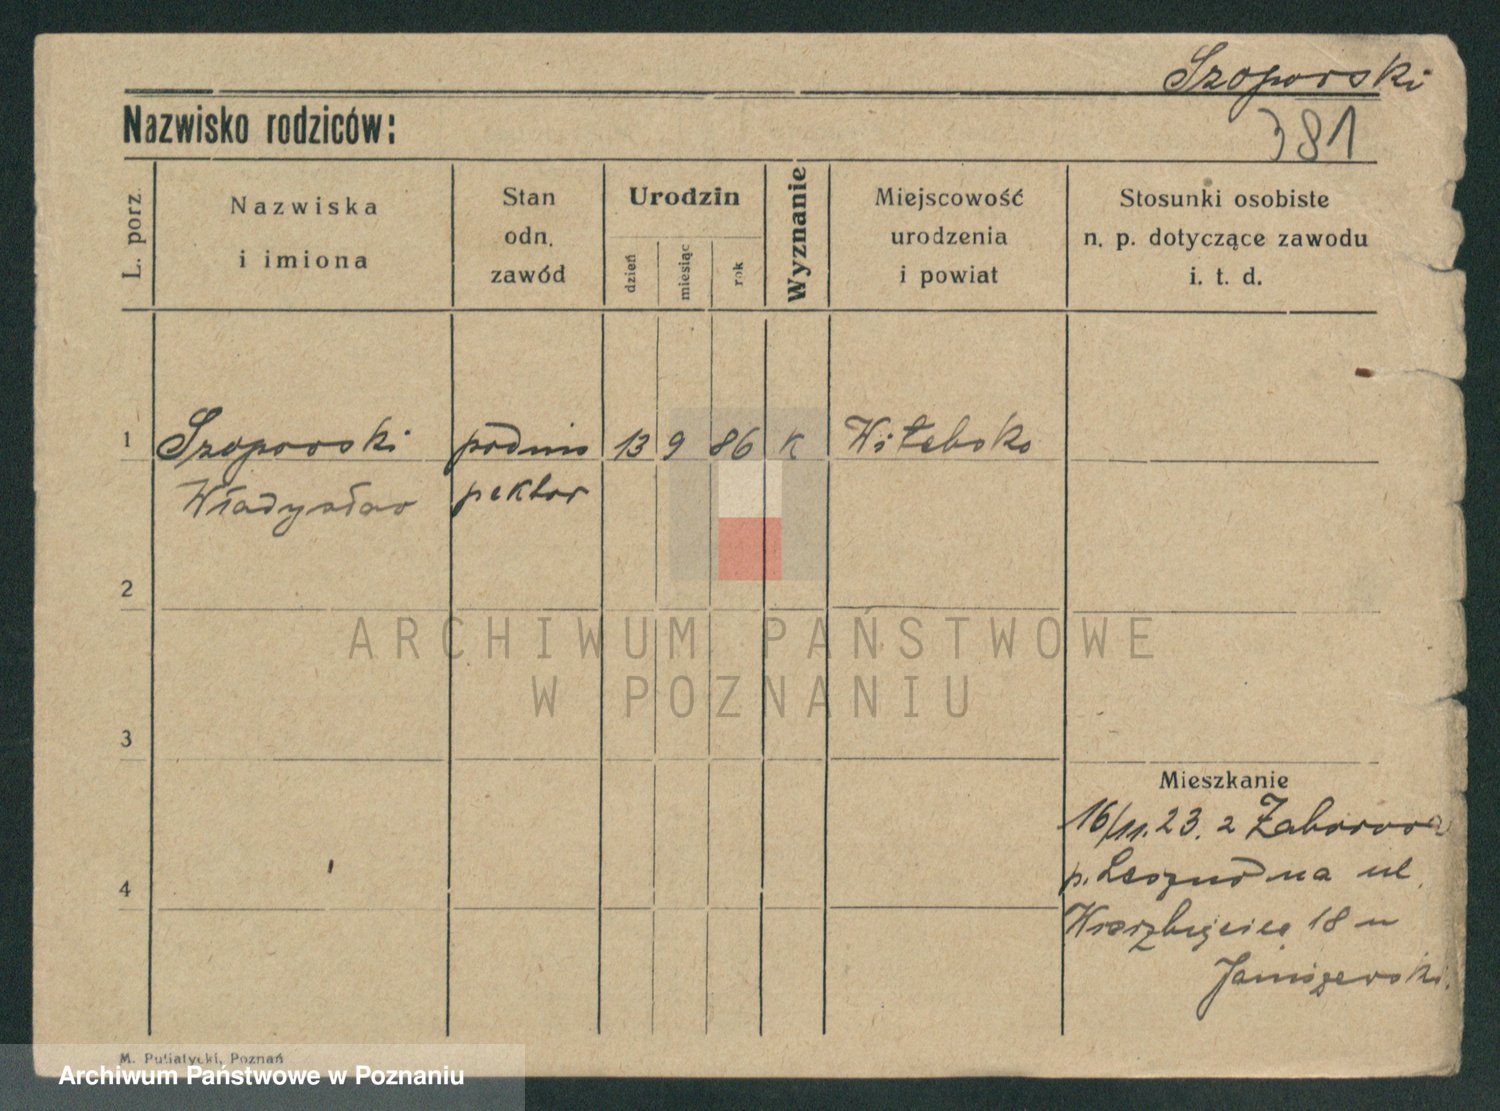 Szoporski
Nazwisko rodziców:
381
L. porz.
Nazwiska
i imiona
Stan
odn.
zawód
Urodzin
dzień
miesiąc
rok
Wyznanie
Miejscowość
urodzenia
i powiat
Stosunki osobiste
n. p. dotyczące zawodu
i. t. d.
1 Szoporski podins 13 9 86 k Witebsko
Władysław pektor
2
ARCHIWUM PAŃSTWOWE
W POZNANIU
3
Mieszkanie
16/11.23. z Zaborowa
4
p. Leszno na ul.
18 u
Janiszewski.
M. Putiatycki, Poznań
Archiwum Państwowe w Poznaniu